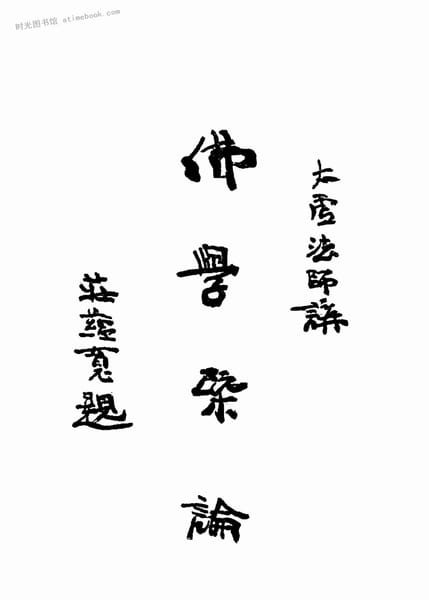 时光图书馆 atimebook.com
太虛法師講
佛學槩論
莊蘊寬題